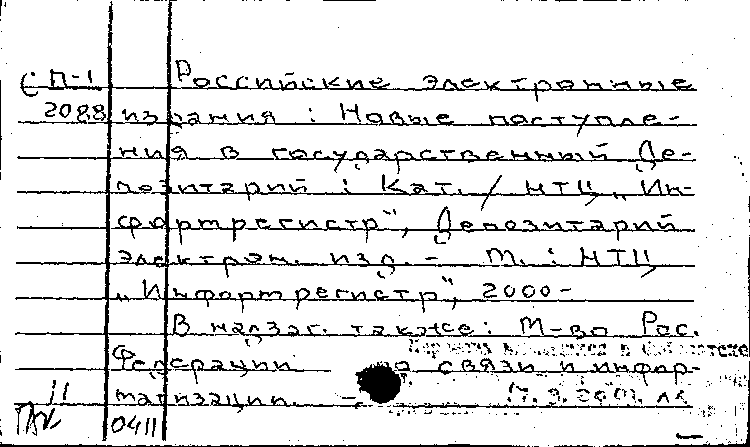 СП-1 Российские электронные
2088 издания : Новые поступле-
ния в государственный Де-
позитарий : Кат. / НТЦ „Ин-
формрегистр", Депозитарий
электрон. изд. - М. : НТЦ
„Информрегистр", 2000-
В надзаг. также: М-во Рос.
Федерации по связи и инфор-
матизации.
11
0411